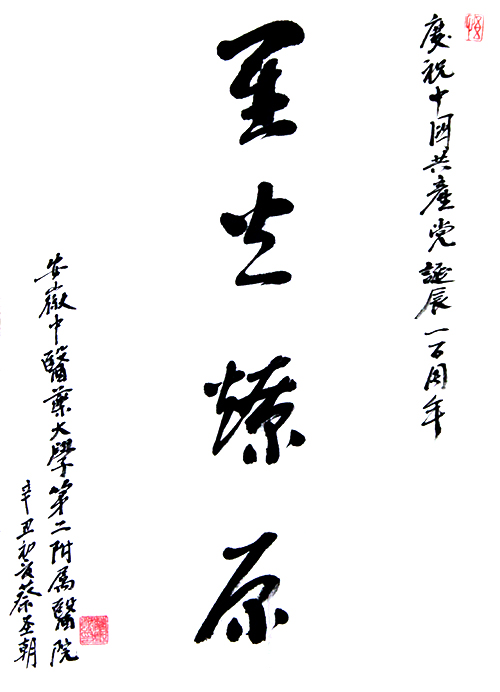 慶祝中國共産党誕辰一百周年
星火燎原
安徽中醫藥大學第二附属醫院
辛丑初夏蔡圣朝